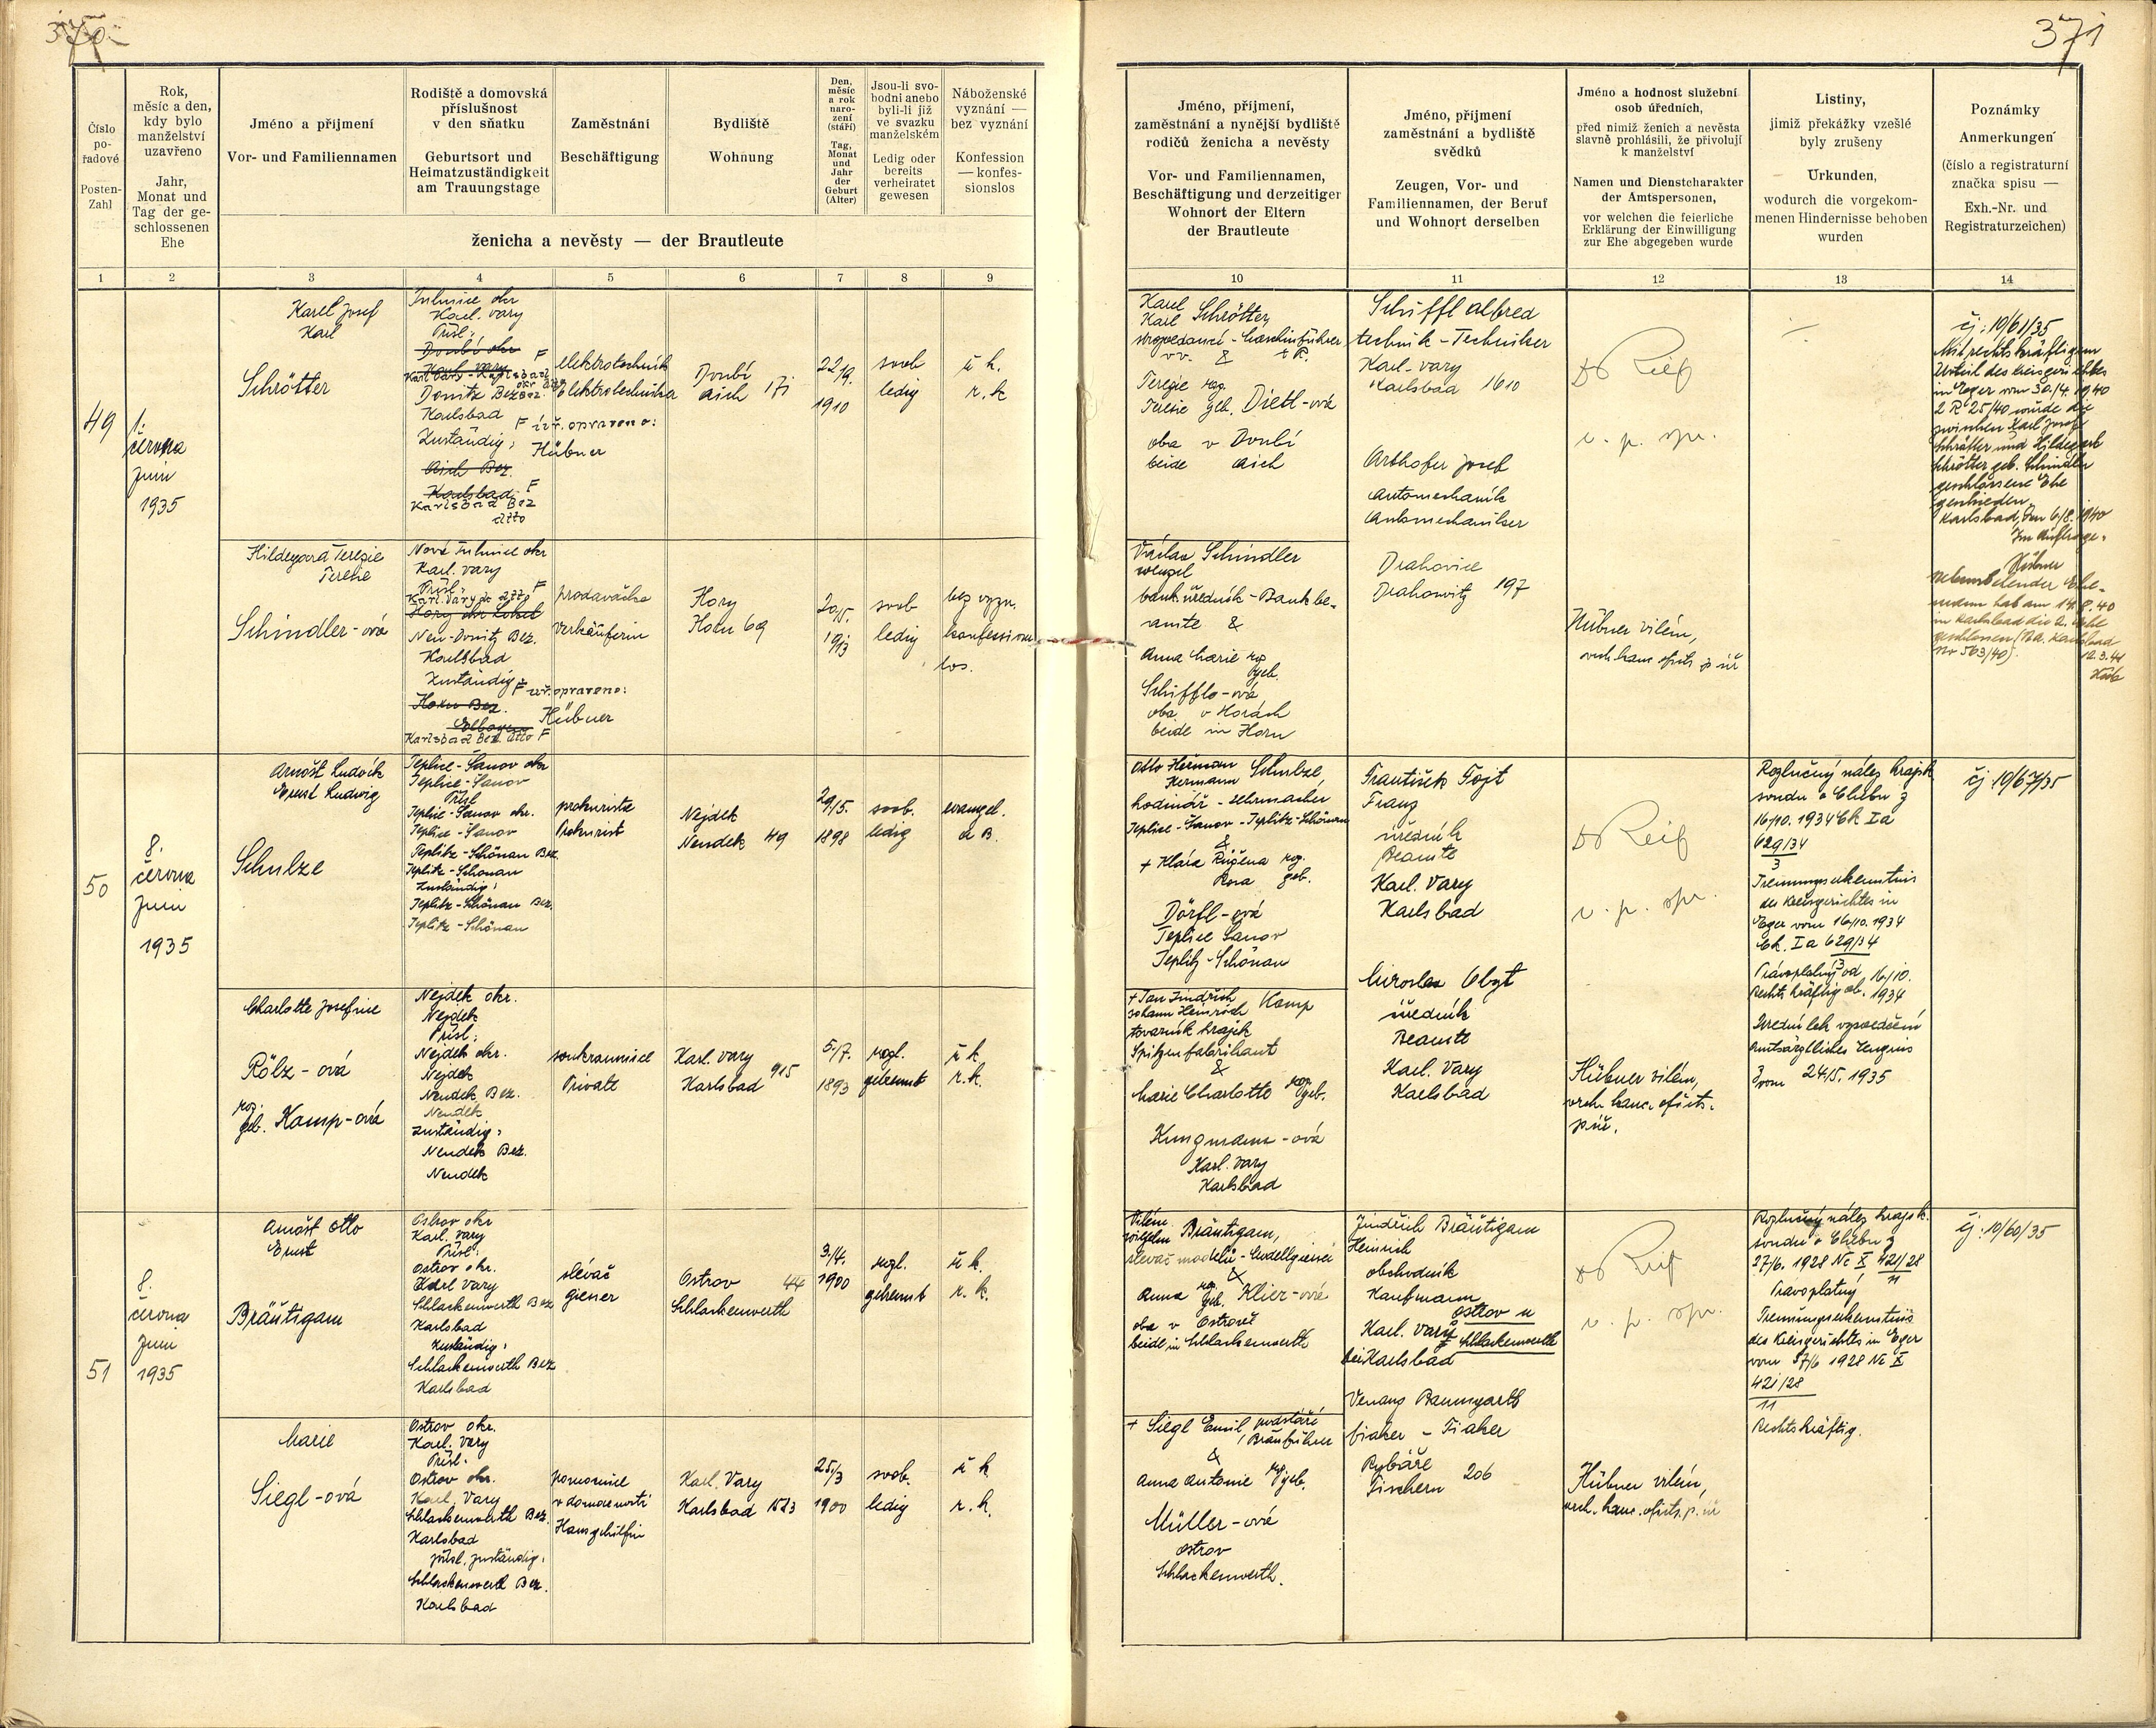 370.
371
Číslo po-řadové
Posten-Zahl
Rok, měsíc a den, kdy bylo manželství uzavřeno
Jahr, Monat und Tag der ge-schlossenen Ehe
Jméno a příjmení
Vor- und Familiennamen
Rodiště a domovská příslušnost v den sňatku
Geburtsort und Heimatzuständigkeit am Trauungstage
Zaměstnání
Beschäftigung
Bydliště
Wohnung
Den, měsíc a rok naro-zení (stáří)
Tag, Monat und Jahr der Geburt (Alter)
Jsou-li svo-bodni anebo byli-li již ve svazku manželském
Ledig oder bereits verheiratet gewesen
Náboženské vyznání — bez vyznání
Konfession — konfes-sionslos
ženicha a nevěsty — der Brautleute
Jméno, příjmení, zaměstnání a nynější bydliště rodičů ženicha a nevěsty
Vor- und Familiennamen, Beschäftigung und derzeitiger Wohnort der Eltern der Brautleute
Jméno, příjmení zaměstnání a bydliště svědků
Zeugen, Vor- und Familiennamen, der Beruf und Wohnort derselben
Jméno a hodnost služební osob úředních,
před nimiž ženich a nevěsta slavně prohlásili, že přivolují k manželství
Namen und Dienstcharakter der Amtspersonen,
vor welchen die feierliche Erklärung der Einwilligung zur Ehe abgegeben wurde
Listiny,
jimiž překážky vzešlé byly zrušeny
Urkunden,
wodurch die vorgekom-menen Hindernisse behoben wurden
Poznámky
Anmerkungen
(číslo a registraturní značka spisu —
Exh.-Nr. und Registraturzeichen)
1 2 3 4 5 6 7 8 9 10 11 12 13 14
49
1.
června
Juni
1935
Karel Josef
Karl
Schrötter
Tuhnice okr
Karl. Vary
Přísl:
Doubí okr F
Karl. Vary
Donitz Bez
Karlsbad
F úř. opraveno:
Zuständig:
Hübner
Aich Bez.
Karlsbad F
Karlsbad Bez
dtto
elektrotechnik
Elektrotechniker
Doubí
Aich 171
22/9.
1910
svob
ledig
ř. k.
r. k
Karel
Karl Schrötter,
strojvedoucí - Maschinführer
v.v. & i. R.
Terezie roz.
Teresie geb. Dietl-ová
oba v Doubí
beide Aich
Schiffl Alfred
technik - Techniker
Karl. Vary
Karlsbad 1610
Arthofer Josef
Automechanik
Automechaniker
Drahovice
Drahowitz 197
Dr Reif
v. p. spr.
Hübner Vilém,
vrch. kanc. ofic. p úř
čj: 10/61/35
Mit rechtskräftigem
Urteil des Kreisgerichtes
in Eger vom 30./4. 1940
2 R 25/40 wurde die
zwischen Karl Josef
Schrötter und Hildegard
Schrötter geb. Schindler
geschlossene Ehe
geschieden.
Karlsbad, den 6/8. 1940
Im Auftrage.
Hübner
Hildegard Terezie
Terese
Schindler-ová
Nové Tuhnice okr
Karl. Vary
Přísl: F
Karl. Vary dtto
Hory okr Loket
Neu-Donitz Bez.
Karlsbad
Zuständig
F úř. opraveno:
Horn Bez.
Hübner
Elbogen
Karlsbad Bez dtto F
prodavačka
Verkäuferin
Hory
Horn 69
20/5.
1913
svob
ledig
bez vyzn.
konfessions
los.
Václav Schindler
Wenzel
bank. úředník - Bankbe-
amte &
Anna Marie roz
geb.
Schiffl-ová
oba v Horách
beide in Horn
50
8.
června
Juni
1935
Arnošt Ludvík
Ernst Ludwig
Schulze
Teplice-Šanov okr
Teplice-Šanov
Přísl
Teplice-Šanov okr.
Teplice-Šanov
Teplitz-Schönau Bez.
Teplitz-Schönau
Zuständig:
Teplitz-Schönau Bez.
Teplitz-Schönau
prokurista
Prokurist
Nejdek
Neudek 49
29/5.
1898
svob.
ledig
evangel.
A B.
Otto Heřman
Hermann Schulze,
hodinář - Uhrmacher
Teplice-Šanov - Teplitz-Schönau
&
+ Klára Růžena roz.
Rosa geb.
Dörfl-ová
Teplice Šanov
Teplitz-Schönau
František Fojt
Franz
úředník
Beamte
Karl. Vary
Karlsbad
Miroslav Vogt
úředník
Beamte
Karl. Vary
Karlsbad
Dr Reif
v. p. spr.
Hübner Vilém,
vrch. kanc. ofict.
p úř.
Rozlučný nález krajsk
soudu v Chebu z
16/10. 1934 Ck Ia
629/34
3
Trennungserkenntnis
des Kreisgerichtes in
Eger vom 16/10. 1934
Ck. Ia 629/34
3
Právoplatný od 16/10.
Rechtskräftig ab. 1934
Úřední lék. vysvědčení
Amtsärztliches Zeugnis
z vom 24/5. 1935
čj 10/67/35
Charlotte Josefine
Rölz-ová
roz.
geb. Kamp-ová
Nejdek okr.
Nejdek
Přísl:
Nejdek okr.
Nejdek
Neudek Bez.
Neudek
zuständig:
Neudek Bez.
Neudek
soukromnice
Private
Karl. Vary 915
Karlsbad
5./7.
1893
rozl.
getrennt
ř. k
r. k.
+ Jan Jindřich
Johann Heinrich Kamp
továrník krajek
Spitzenfabrikant
&
Marie Charlotte roz geb.
Kungmann-ová
Karl. Vary
Karlsbad
51
8.
června
Juni
1935
Arnošt Otto
Ernst
Bräutigam
Ostrov okr
Karl. Vary
Přísl:
Ostrov okr.
Karl Vary
Schlackenwerth Bez
Karlsbad
zuständig:
Schlackenwerth Bez
Karlsbad
slévač
giesser
Ostrov 44
Schlackenwerth
3./4.
1900
rozl.
getrennt
ř. k.
r. k.
Vilém
Wilhelm Bräutigam,
slevač modelů - Modellgiesser
&
Anna roz
geb. Klier-ová
oba v Ostrově
beide in Schlackenwerth
Jindřich Bräutigam
Heinrich
obchodník
Kaufmann
Ostrov u
Karl. Vary
Schlackenwerth
bei Karlsbad
Venanz Baumgartl
fiaker - Fiaker
Rybáře
Fischern 206
Dr Reif
v. p. spr.
Hübner Vilém,
vrch. kanc. ofict. p. úř
Rozlučný nález krajsk.
soudu v Chebu z
27/6. 1928 Nc X 421/28
11
Právoplatný
Trennungserkenntnis
des Kreisgerichtes in Eger
vom 27/6 1928 Nc X
421/28
11
Rechtskräftig.
čj: 10/60/35
Marie
Siegl-ová
Ostrov okr.
Karl. Vary
Přísl.
Ostrov okr.
Karl. Vary
Schlackenwerth Bez.
Karlsbad
přísl. zuständig:
Schlackenwerth Bez.
Karlsbad
pomocnice
v domácnosti
Hausgehilfin
Karl. Vary
Karlsbad
25/3
1900
svob.
ledig
ř k
r. k.
+ Siegl Emil, podstárí
Bräuführer
&
Anna Antonie roz geb.
Müller-ová
Ostrov
Schlackenwerth.